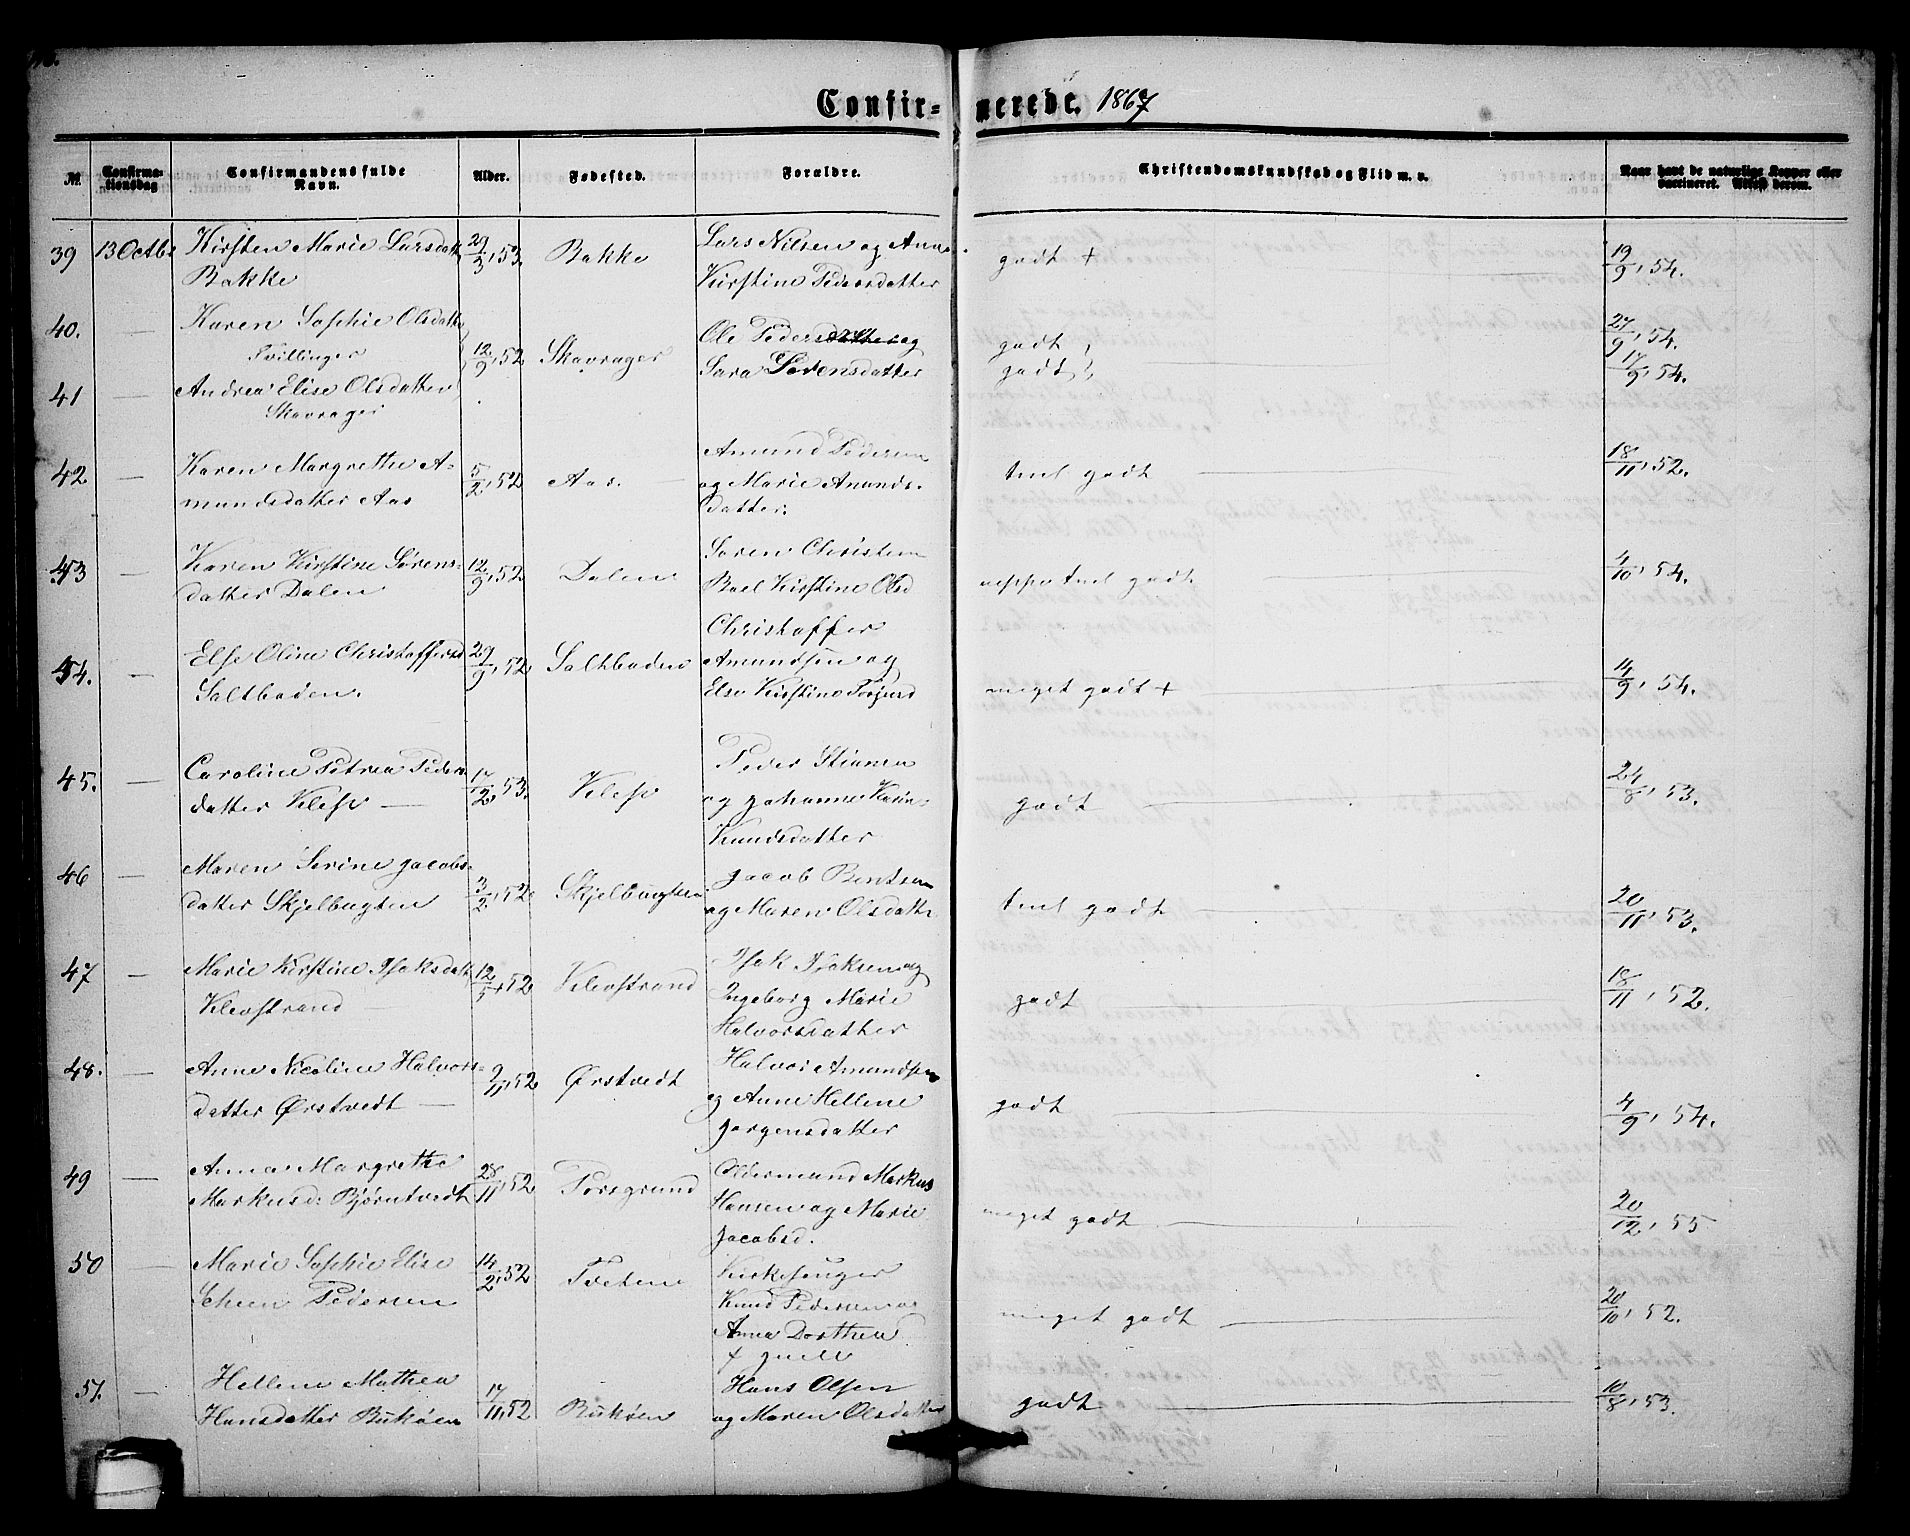 Confir= merede. 1867
№
Confirma-
tionsdag
Confirmandens fulde
Navn.
Alder.
Fødested.
Forældre.
Christendomskundskab og Flid m. v.
Naar havt de naturlige Kopper eller
vaccineret. Attest derom.
39 13 Octbr Kirsten Marie Larsdatt 29/3, 53. Bakke Lars Nilsen og Anne godt + 19/9, 54.
Bakke Kirstine Pedersdatter
40. — Karen Sophie Olsdatt 12/9, 52 Skavrager Ole Pedersdatter og godt, 27/9, 54.
Tvillinger Sara Sørensdatter godt, 17/9, 54.
41 — Andrea Elise Olsdatter
Skavrager
42 — Karen Margrethe A- 5/2, 52 Aas. Amund Pedersen temt godt 18/11, 52.
mundsdatter Aas og Marie Amunds-
datter.
43 — Karen Kirstine Sørens- 12/9, 52 Dalen Søren Christen 4/10, 54.
datter Dalen Boel Kirstine Olsd godt
44. — Else Oline Christoffersd 29/9, 52 Saltboden Christoffer meget godt + 14/9, 54.
Saltboden. Amundsen og
Else Kirstine
45. — Caroline Petrea Peders 17/2, 53. Klep Peder Stiansen godt 24/8, 53.
datter Klep — og Johanne Karin
Knudsdatter
46 — Maren Serine Jacobs- 3/2, 52 Skjelbugten Jacob Bentsen temt godt 20/11, 53.
datter Skjelbugten og Maren Olsdattr
47 — Marie Kirstine Isaksdatt 12/5, 52 Klevstrand Isak Isaksen og godt 18/11, 52.
Klevstrand — Ingeborg Marie
Halvorsdatter
48. — Anne Nicoline Halvors- 9/11, 52 Ørstvedt Halvor Amundsen godt 4/9, 54.
datter Ørstvedt — og Anne Hellene
Jørgensdatter
49 — Anna Margrethe 28/11, 52 Porsgrund Oldermand Markus meget godt 20/12, 55
Markusd: Bjørntvedt Hansen og Marie
Jacobsd.
50 Marie Sophie Elise 14/2, 52 Tveten Kirkesanger meget godt 20/10, 52.
Scheen Pedersen Knud Pedersen og
Anna Dorthea
51. — Hellene Mathea 17/11, 52 Bukøen Hans Olsen godt 10/8, 53.
Hansdatter Bukøen og Maren Olsdatter